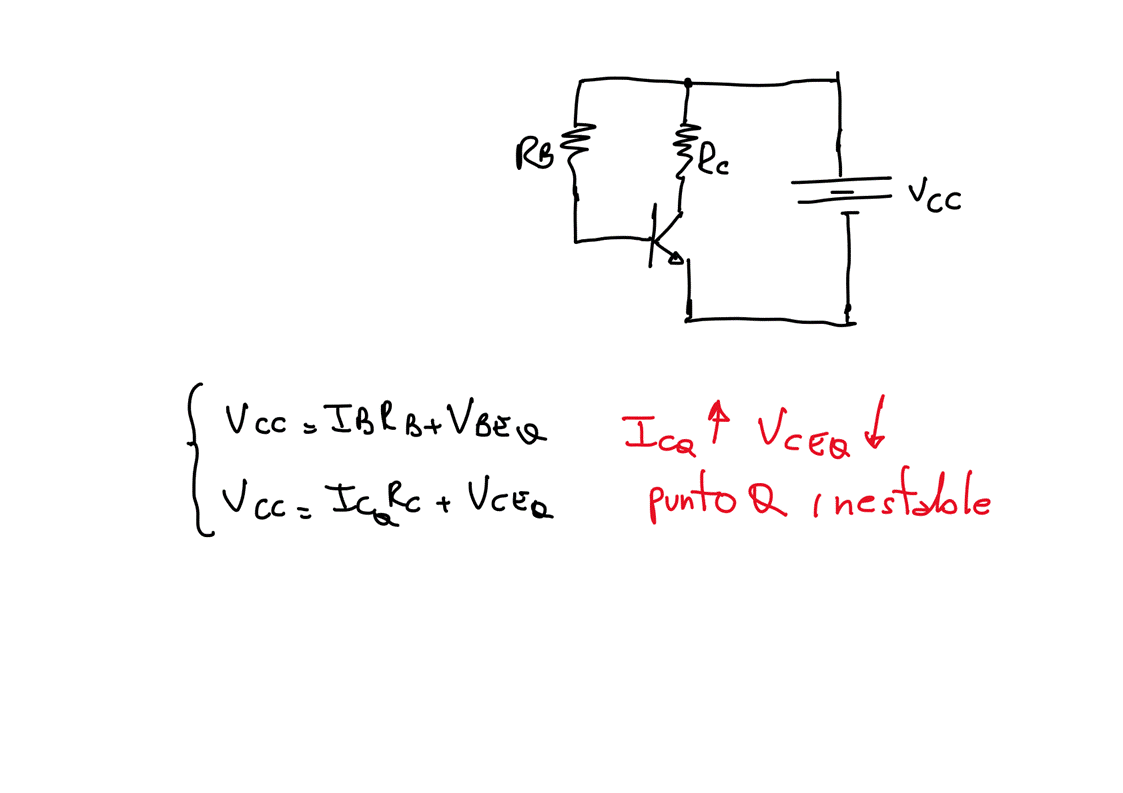 RB
RC
VCC
VCC = IBRB + VBEQ
ICQ ↑ VCEQ ↓
VCC = ICQRC + VCEQ
punto Q inestable